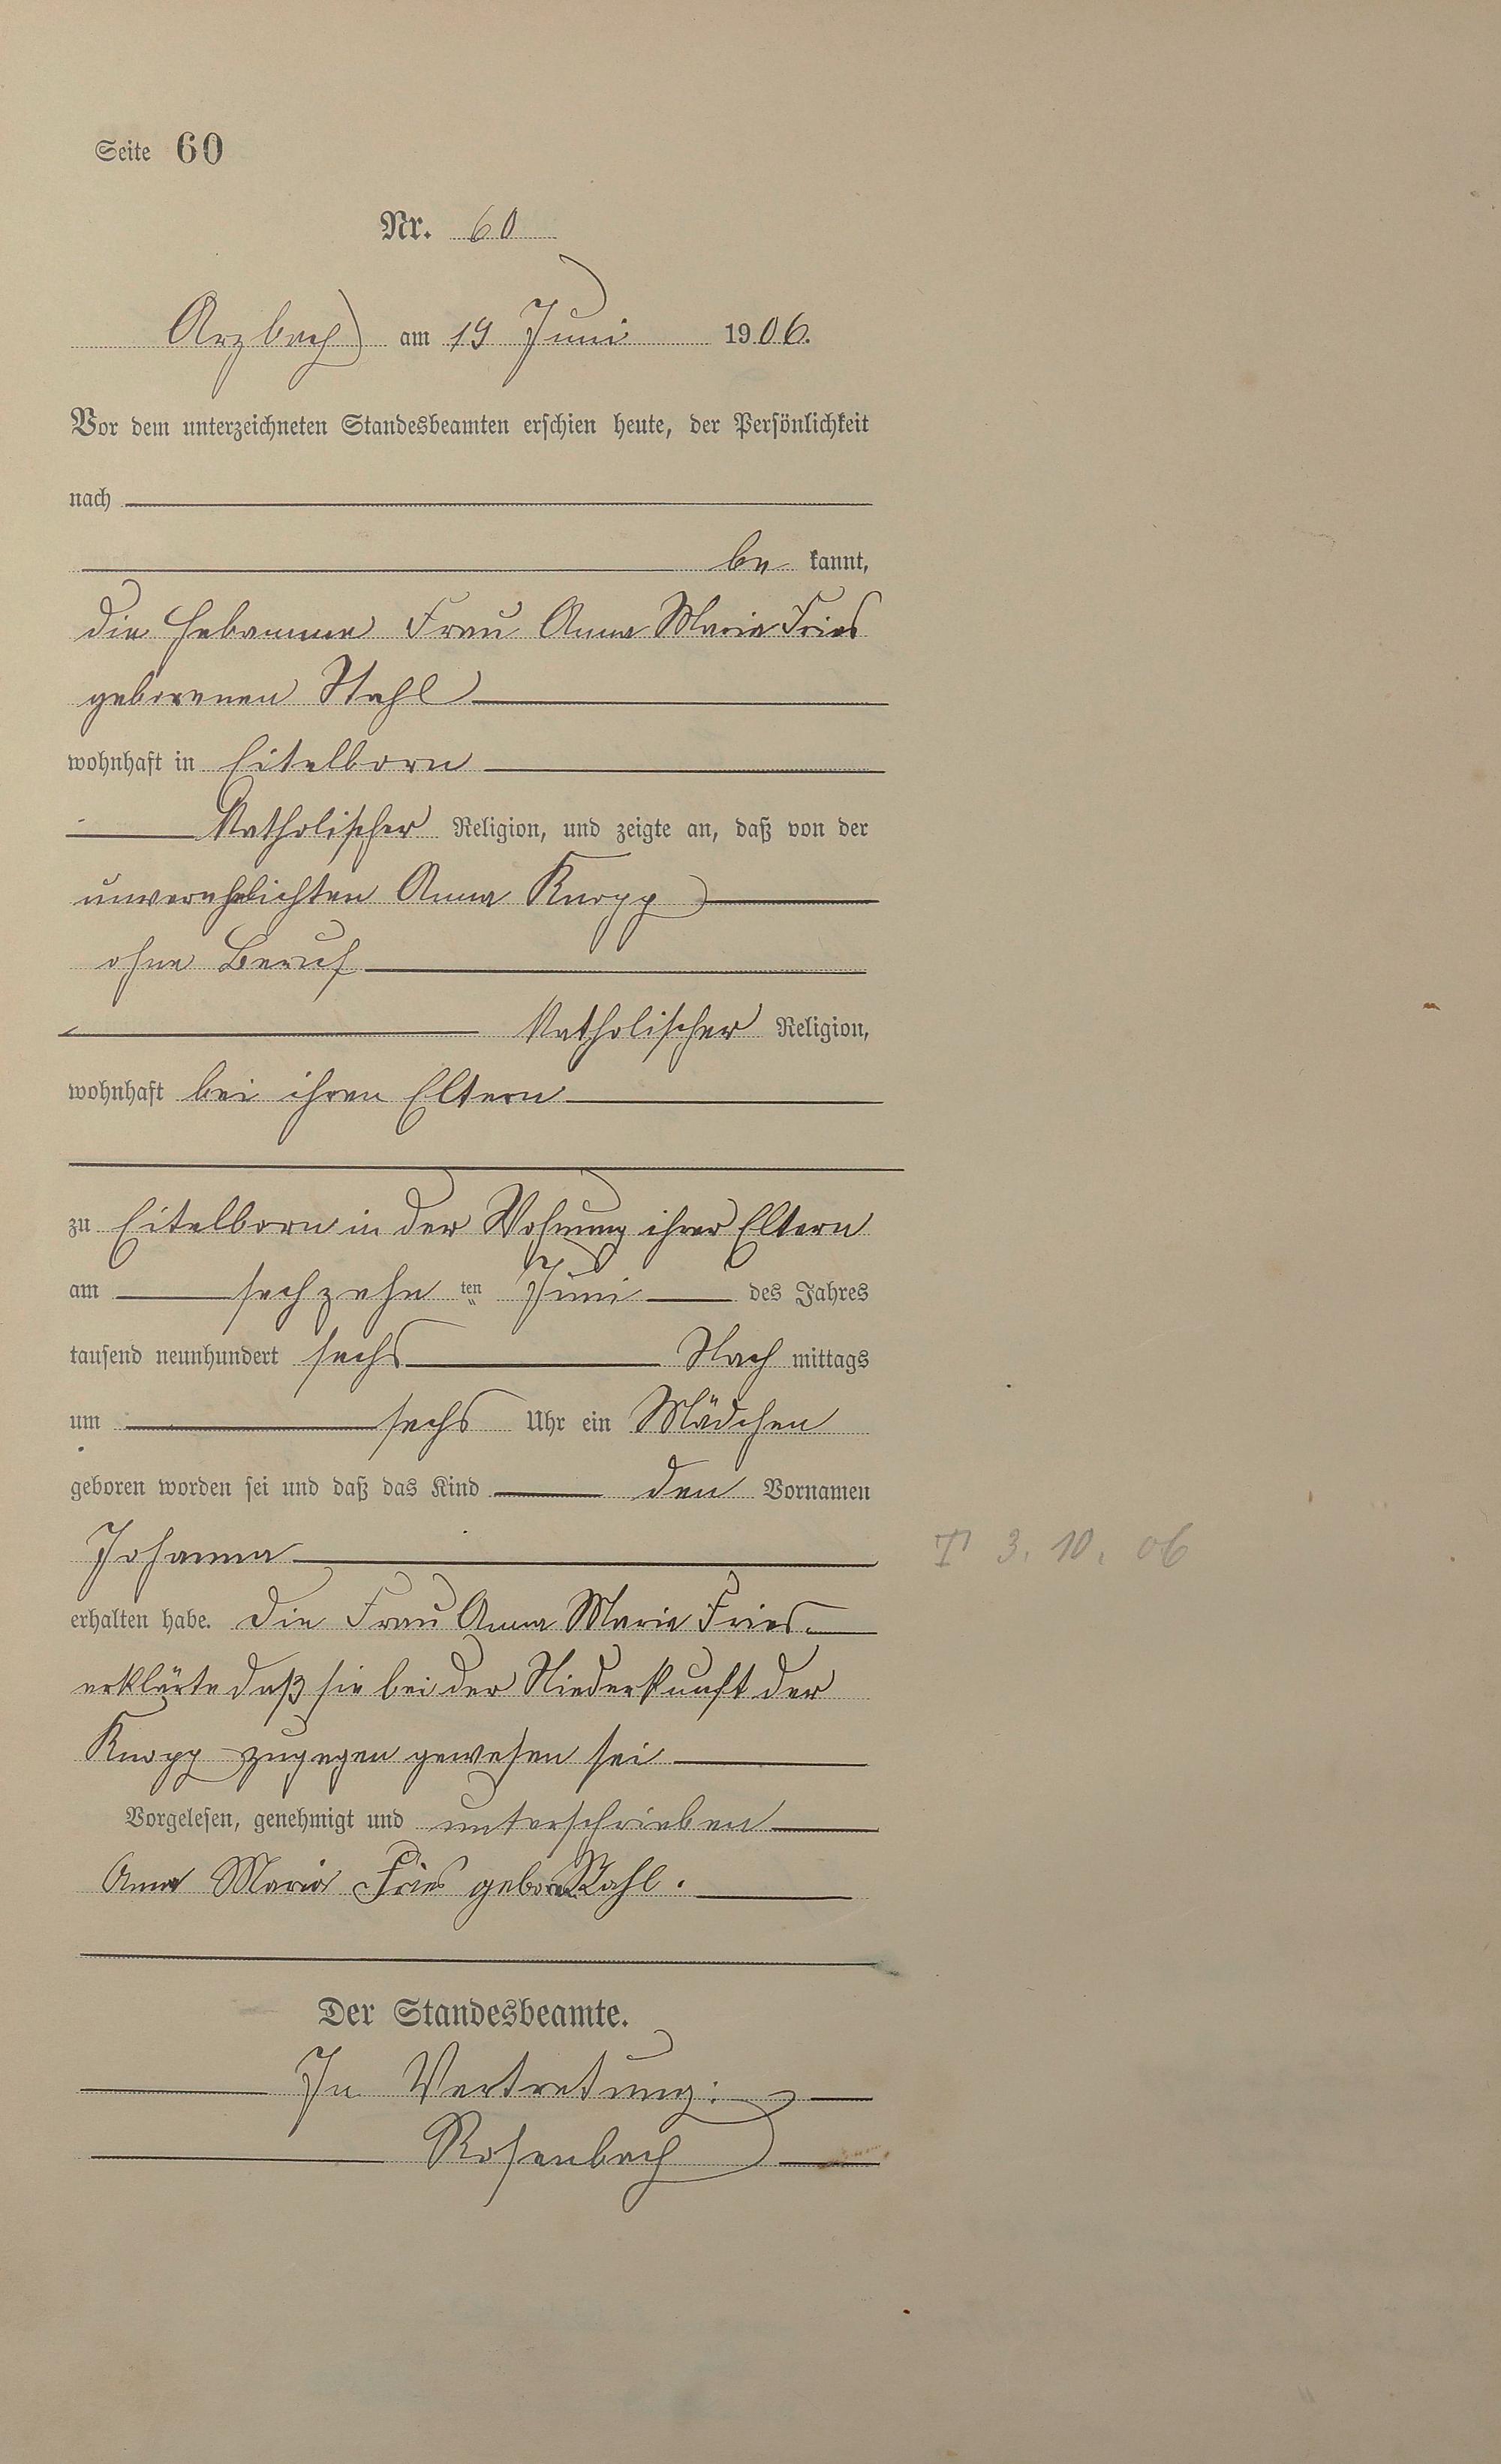 Seite 60
Nr. 60
Arzbach am 19 Juni 1906.
Vor dem unterzeichneten Standesbeamten erschien heute, der Persönlichkeit
nach
be kannt,
die Hebamme Frau Anna Maria Fries
geborenen Stahl
wohnhaft in Eitelborn
Katholischer Religion, und zeigte an, daß von der
unverehelichten Anna Knopp
ohne Beruf
Katholischer Religion,
wohnhaft bei ihren Eltern
zu Eitelborn in der Wohnung ihrer Eltern
am sechzehn ten Juni des Jahres
tausend neunhundert sechs Nach mittags
um sechs Uhr ein Mädchen
geboren worden sei und daß das Kind den Vornamen
Johanna
† 3. 10. 06
erhalten habe. Die Frau Anna Maria Fries
erklärte daß sie bei der Niederkunft der
Knopp zugegen gewesen sei
Vorgelesen, genehmigt und unterschrieben
Anna Maria Fries geborene Stahl.
Der Standesbeamte.
In Vertretung:
Rosenbach